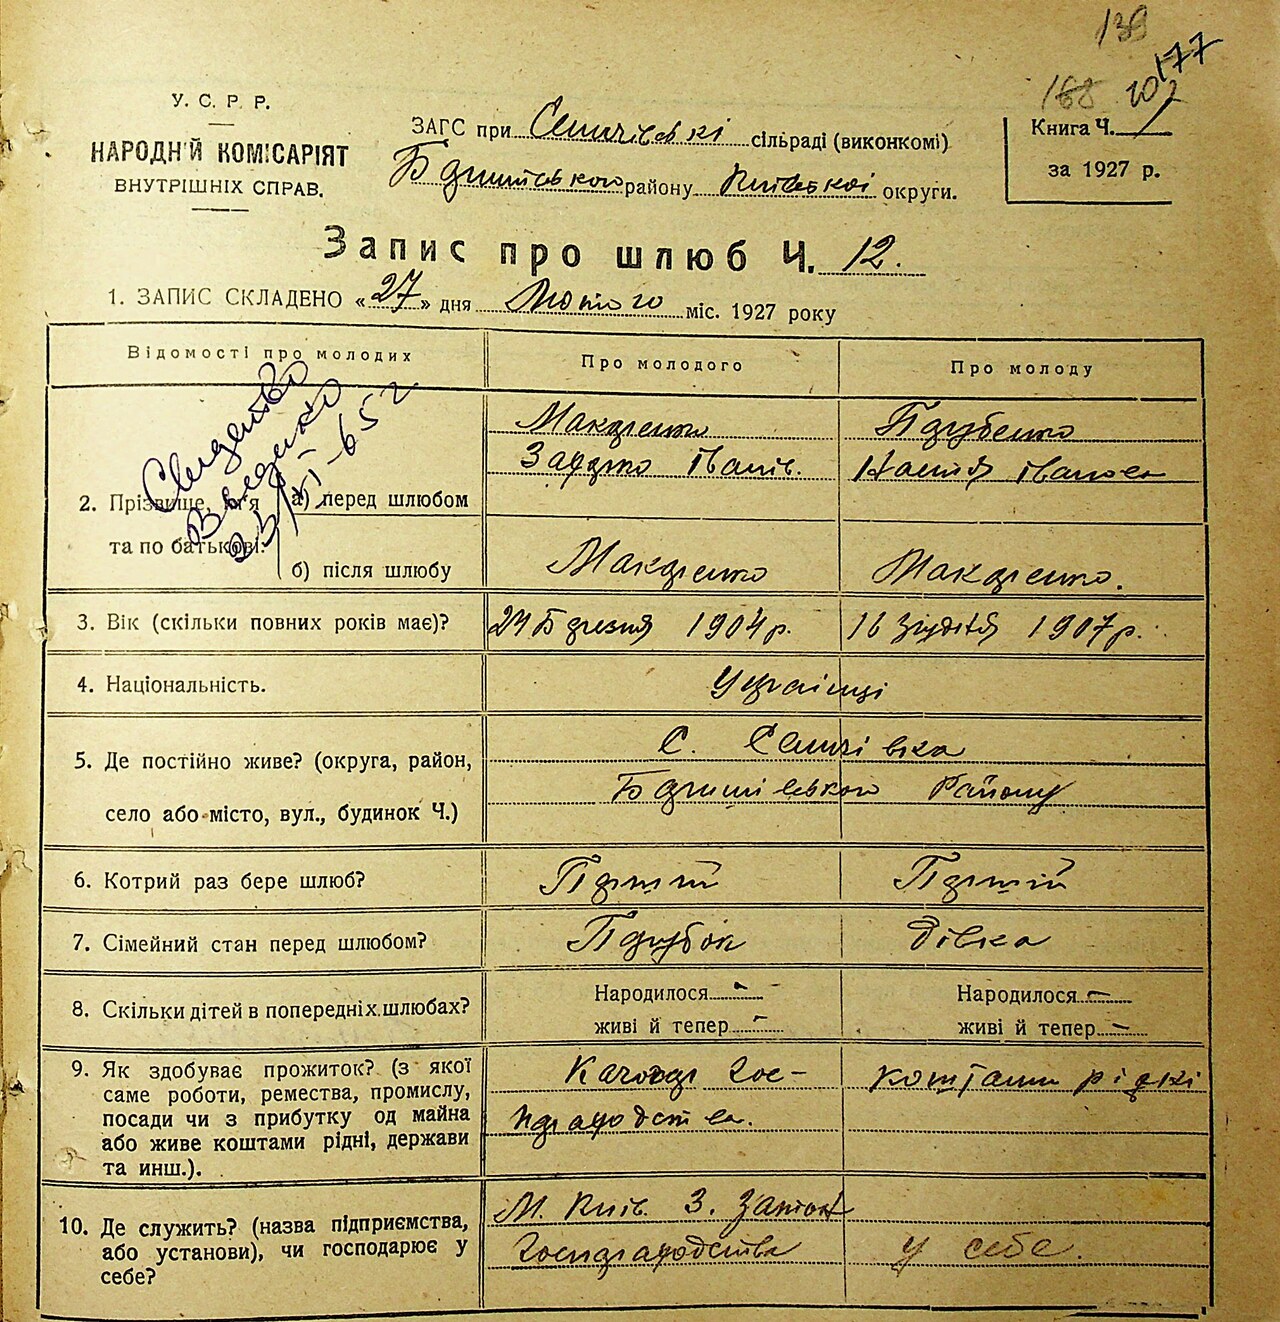 139
177
168
У. С. Р. Р.
НАРОДНІЙ КОМІСАРІЯТ
ВНУТРІШНІХ СПРАВ.
ЗАГС при Семчівскі сільраді (виконкомі)
району Київскої округи.
Книга Ч.
за 1927 р.
Запис про шлюб Ч. 12.
1. ЗАПИС СКЛАДЕНО «27» дня Лютого міс. 1927 року
Відомості про молодих
Про молодого
Про молоду
2. Прізвище, ім'я та по батькові:
а) перед шлюбом
Макаренко
Іванів.
Настя Іванов
б) після шлюбу
Макаренко
Макаренко.
Свидетво
Видано
23/XI-65 г
3. Вік (скільки повних років має)?
24 Березня 1904 р.
16 Грудня 1907 р.
4. Національність.
Українці
5. Де постійно живе? (округа, район,
село або місто, вул., будинок Ч.)
С. Семчівка
Району
6. Котрий раз бере шлюб?
Перший
Перший
7. Сімейний стан перед шлюбом?
Парубок
Дівка
8. Скільки дітей в попередніх шлюбах?
Народилося -
живі й тепер -
Народилося -
живі й тепер -
9. Як здобуває прожиток? (з якої
саме роботи, ремества, промислу,
посади чи з прибутку од майна
або живе коштами рідні, держави
та инш.).
Гос-
подарства.
коштами рідні
10. Де служить? (назва підприємства,
або установи), чи господарює у
себе?
М. Київ. З.
Господарства
у себе.